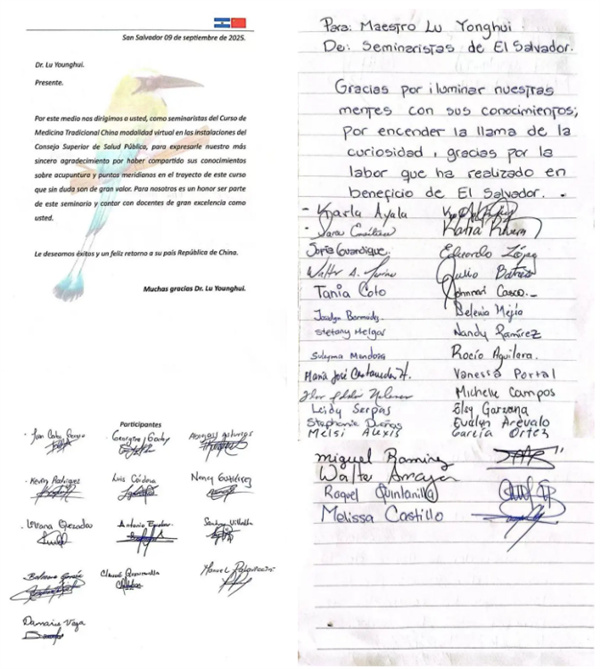 San Salvador 09 de septiembre de 2025.
Dr. Lu Younghui.
Presente.
Por este medio nos dirigimos a usted, como seminaristas del Curso de
Medicina Tradicional China modalidad virtual en las instalaciones del
Consejo Superior de Salud Pública, para expresarle nuestro más
sincero agradecimiento por haber compartido sus conocimientos
sobre acupuntura y puntos meridianos en el trayecto de este curso
que sin duda son de gran valor. Para nosotros es un honor ser parte
de este seminario y contar con docentes de gran excelencia como
usted.
Le deseamos éxitos y un feliz retorno a su país República de China.
Muchas gracias Dr. Lu Younghui.
Participantes
Kevin Rodriguez
Luis Córdova
Nancy Gutiérrez
Antonio
Manuel
Damaris Vega
Para: Maestro Lu Yonghui.
De: Seminaristas de El Salvador.
Gracias por iluminar nuestras
mentes con sus conocimientos;
por encender la llama de la
curiosidad, gracias por la
labor que ha realizado en
beneficio de El Salvador.
- Karla Ayala
Katia Rivera
Sofia Guardique
Eduardo López
Walter A.
Julio
Tania Coto
Belenia Mejia
Stefany Melgar
Nandy Ramírez
Suleyma Mendoza
Rocío Aguilera.
Maria José
Vanessa Portal
Michelle Campos
Leidy Serpas
Elsy
Stephanie Dueñas
Evelyn Arévalo
Melsi Alexis
García Ortez
Miguel Ramirez
Walter Amaya
Raquel Quintanilla
Melissa Castillo